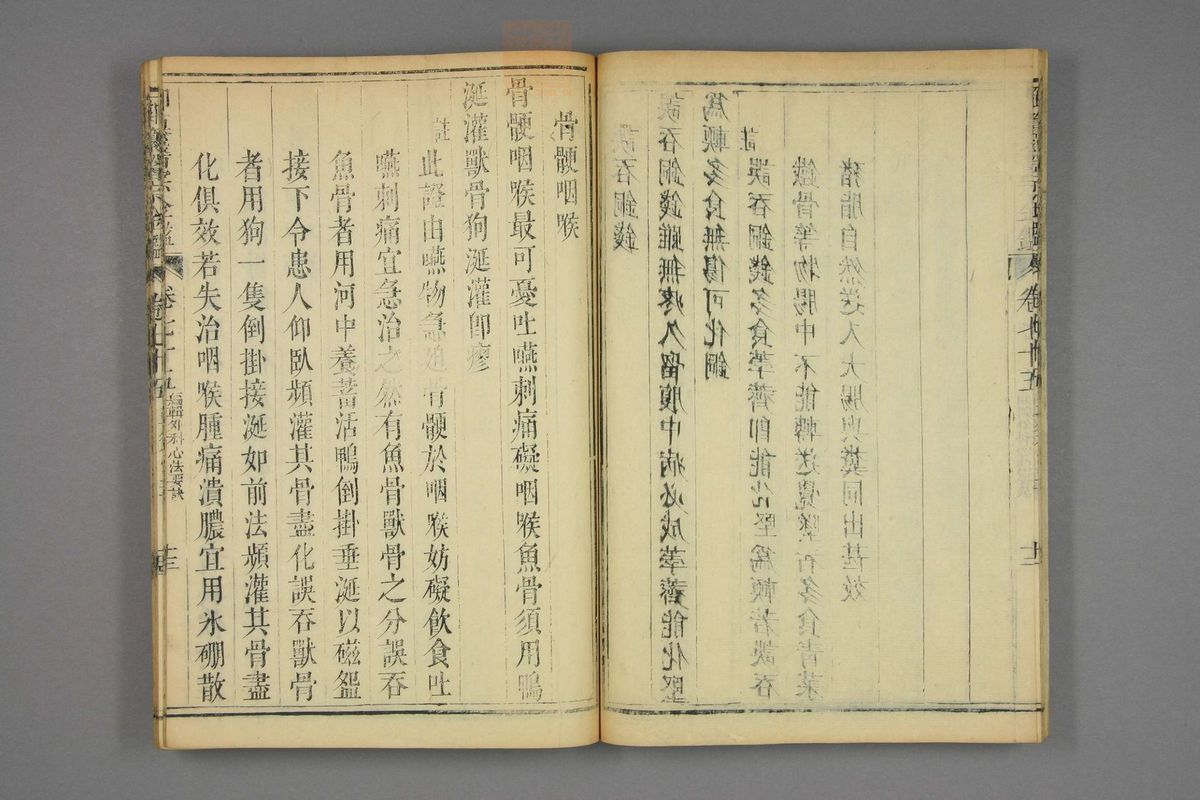 誤吞銅錢
誤吞銅錢雖無疼久留腹中病必成荸薺能化堅
為輭多食無傷可化銅
註
誤吞銅錢多食荸薺即能化堅為輭若誤吞
鐵骨等物腸中不能轉送覺墜者多食青菜
豬脂自然送入大腸與糞同出甚效
骨骾咽喉
骨骾咽喉最可憂吐嚥刺痛礙咽喉魚骨須用鴨
涎灌獸骨狗涎灌即瘳
註
此證由嚥物急迫骨骾於咽喉妨礙飲食吐
嚥刺痛宜急治之然有魚骨獸骨之分誤吞
魚骨者用河中養蓄活鴨倒掛垂涎以磁盌
接下令患人仰臥頻灌其骨盡化誤吞獸骨
者用狗一隻倒掛接涎如前法頻灌其骨盡
化俱效若失治咽喉腫痛潰膿宜用氷硼散
卷七十五 編輯外科心法要訣
十三